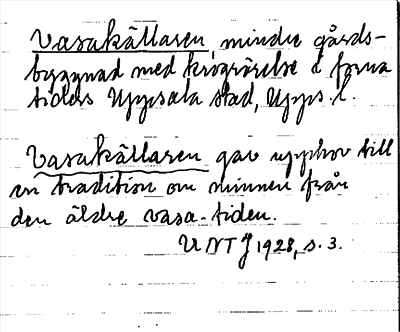 Vasakällaren, mindre gårds-
byggnad med krogrörelse i forna
tiders Uppsala stad, Upps. l.
Vasakällaren gav upphov till
en tradition om minnen från
den äldre vasa-tiden.
UNT J 1928, s. 3.